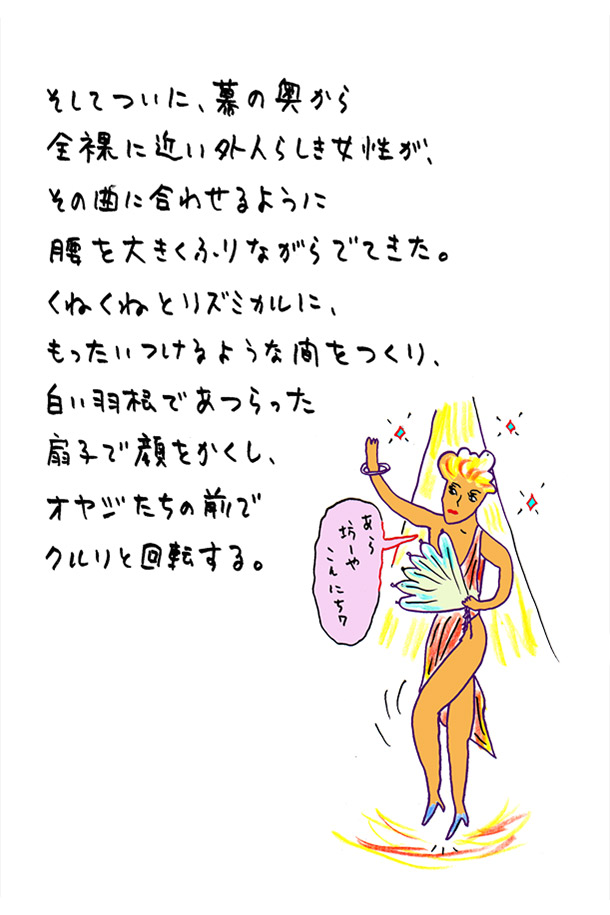 そしてついに、幕の奥から
全裸に近い外人らしき女性が、
その曲に合わせるように
腰を大きくふりながらでてきた。
くねくねとリズミカルに、
もったいつけるような間をつくり、
白い羽根であつらった
扇子で顔をかくし、
オヤジたちの前で
クルリと回転する。
あら
坊ーや
こんにちワ